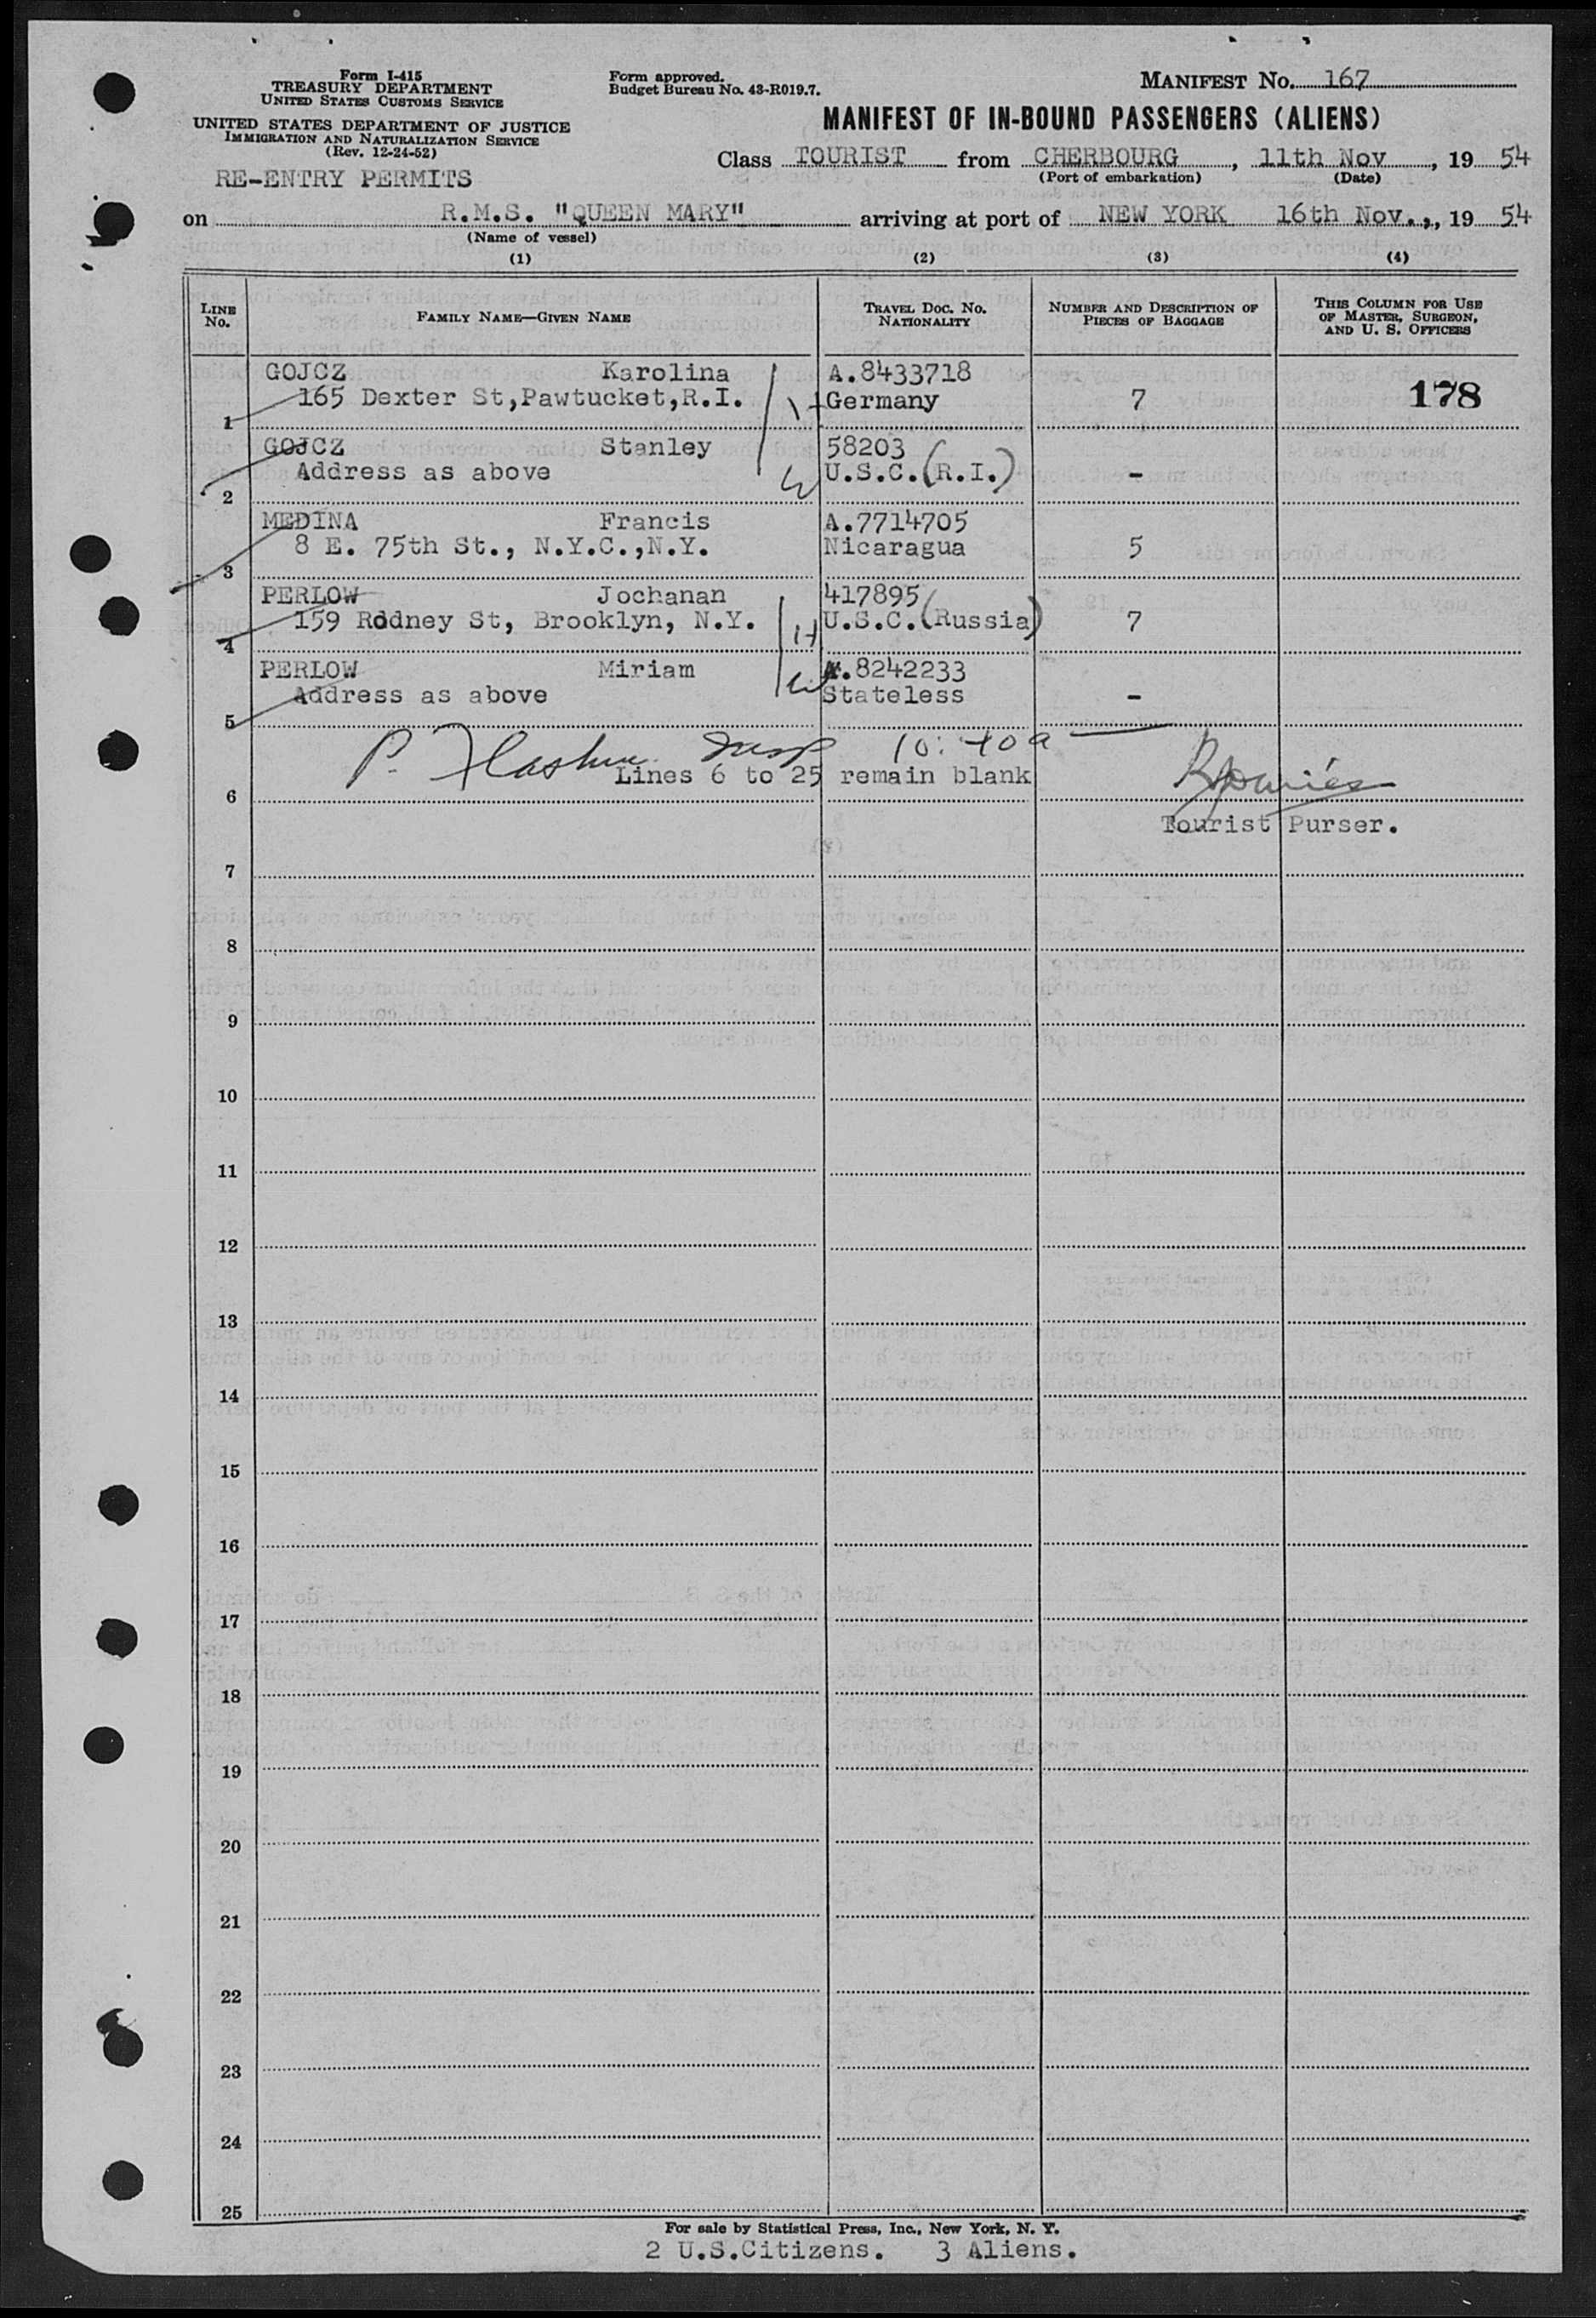 Form I-415
TREASURY DEPARTMENT
UNITED STATES CUSTOMS SERVICE
UNITED STATES DEPARTMENT OF JUSTICE
IMMIGRATION AND NATURALIZATION SERVICE
(Rev. 12-24-52)
RE-ENTRY PERMITS
Form approved.
Budget Bureau No. 43-R019.7.
MANIFEST No. 167
MANIFEST OF IN-BOUND PASSENGERS (ALIENS)
Class TOURIST from CHERBOURG, 11th Nov, 19 54
(Port of embarkation) (Date)
on R.M.S. "QUEEN MARY" arriving at port of NEW YORK 16th Nov., 19 54
(Name of vessel)
(1) (2) (3) (4)
LINE No. FAMILY NAME—GIVEN NAME TRAVEL DOC. NO. NATIONALITY NUMBER AND DESCRIPTION OF PIECES OF BAGGAGE THIS COLUMN FOR USE OF MASTER, SURGEON, AND U. S. OFFICERS
GOJCZ Karolina A.8433718
1 165 Dexter St,Pawtucket,R.I. H Germany 7 178
GOJCZ Stanley 58203
2 Address as above W U.S.C.(R.I.) -
MEDINA Francis A.7714705
3 8 E. 75th St., N.Y.C.,N.Y. Nicaragua 5
PERLOW Jochanan 417895
4 159 Rodney St, Brooklyn, N.Y. H U.S.C.(Russia) 7
PERLOW Miriam A.8242233
5 Address as above W Stateless -
P. Insp 10:40a
6 Lines 6 to 25 remain blank
Tourist Purser.
7
8
9
10
11
12
13
14
15
16
17
18
19
20
21
22
23
24
25
For sale by Statistical Press, Inc., New York, N. Y.
2 U.S.Citizens. 3 Aliens.